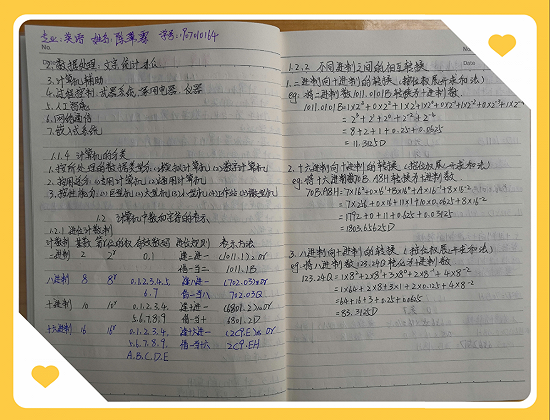 专业:英语 姓名:陈苹 学号:
No.
2.数据处理:文字、统计
3.计算机辅助
4.过程控制:武器系统、家用电器、仪器
5.人工智能
6.网络通信
7.嵌入式系统
1.1.4 计算机的分类
1.按所处理的数据类型:(1)模拟计算机(2)数字计算机
2.按用途分:(1)专用计算机(2)通用计算机
3.按性能分:(1)巨型机(2)大型机(3)小型机(4)工作站(5)微型机
1.2 计算机中数和字符的表示
1.2.1 进位计数制
计数制 基数 第i位的权 有效数码 进位规则 表示方法
二进制 2 0.1 逢二进一 (1011.1)2 or
借一当二 1011.1B
八进制 8 0.1.2.3.4.5 逢八进一 (702.03)8 or
6.7 借一当八 702.03Q
十进制 10 0.1.2.3.4. 逢十进一 (6801.2)10 or
5.6.7.8.9 借一当十 6801.2D
十六进制 16 0.1.2.3.4. 逢十六进一 (2C9.E)16 or
5.6.7.8.9. 借一当十六 2C9.EH
A.B.C.D.E
No.
Date
1.2.2 不同进制之间的相互转换
1.二进制向十进制的转换(按位权展开求和法)
eg.将二进制数1011.0101B转换为十进制数
1011.0101B=1×2³+0×2²+1×2¹+1×2⁰+0×2⁻¹+1×2⁻²+0×2⁻³+1×2⁻⁴
=8+2+1+0.25+0.0625
=11.3125D
2.十六进制向十进制的转换(按位权展开求和法)
eg.将十六进制数70B.A8H转换为十进制数
70B.A8H=7×16²+0×16¹+B×16⁰+A×16⁻¹+8×16⁻²
=7×256+0×16+11×1+10×0.0625+8×16⁻²
=1792+0+11+0.625+0.03125
=1803.65625D
3.八进制向十进制的转换(按位权展开求和法)
eg.将八进制数123.24Q转换为十进制数
123.24Q=1×8²+2×8¹+3×8⁰+2×8⁻¹+4×8⁻²
=1×64+2×8+3×1+2×0.125+4×8⁻²
=64+16+3+0.25+0.0625
=83.3125D